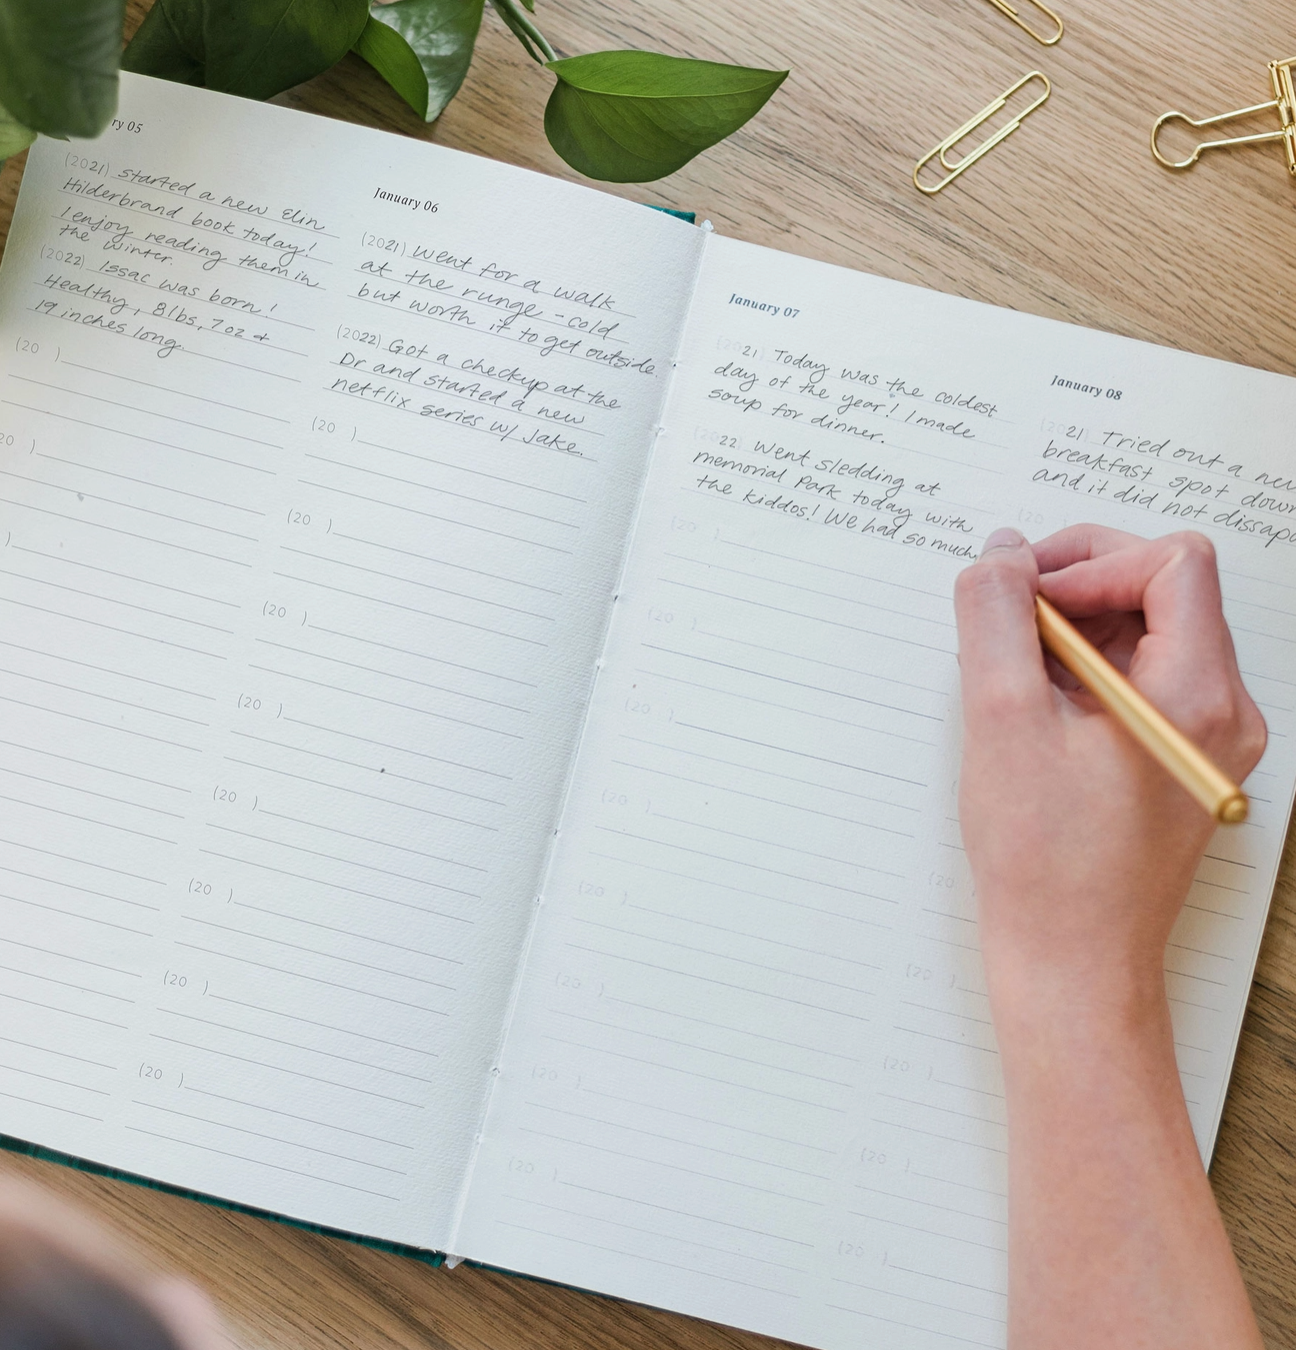 ry 05
(2021) started a new Elin
Hilderbrand book today!
I enjoy reading them in
the winter.
(2022) Issac was born!
Healthy, 8lbs, 7oz &
19 inches long.
(20 )
20 )
)
January 06
(2021) went for a walk
at the runge - cold
but worth it to get outside.
(2022) Got a checkup at the
Dr and started a new
netflix series w/ Jake.
(20 )
(20 )
(20 )
(20 )
(20 )
(20 )
(20 )
(20 )
January 07
(2021) Today was the coldest
day of the year! I made
soup for dinner.
(2022) went sledding at
memorial Park today with
the kiddos! We had so much
(20 )
(20 )
(20 )
(20 )
(20 )
(20 )
(20 )
(20 )
January 08
(2021) Tried out a new
breakfast spot down
and it did not dissapo
(20
(20
(20 )
(20 )
(20 )
(20 )